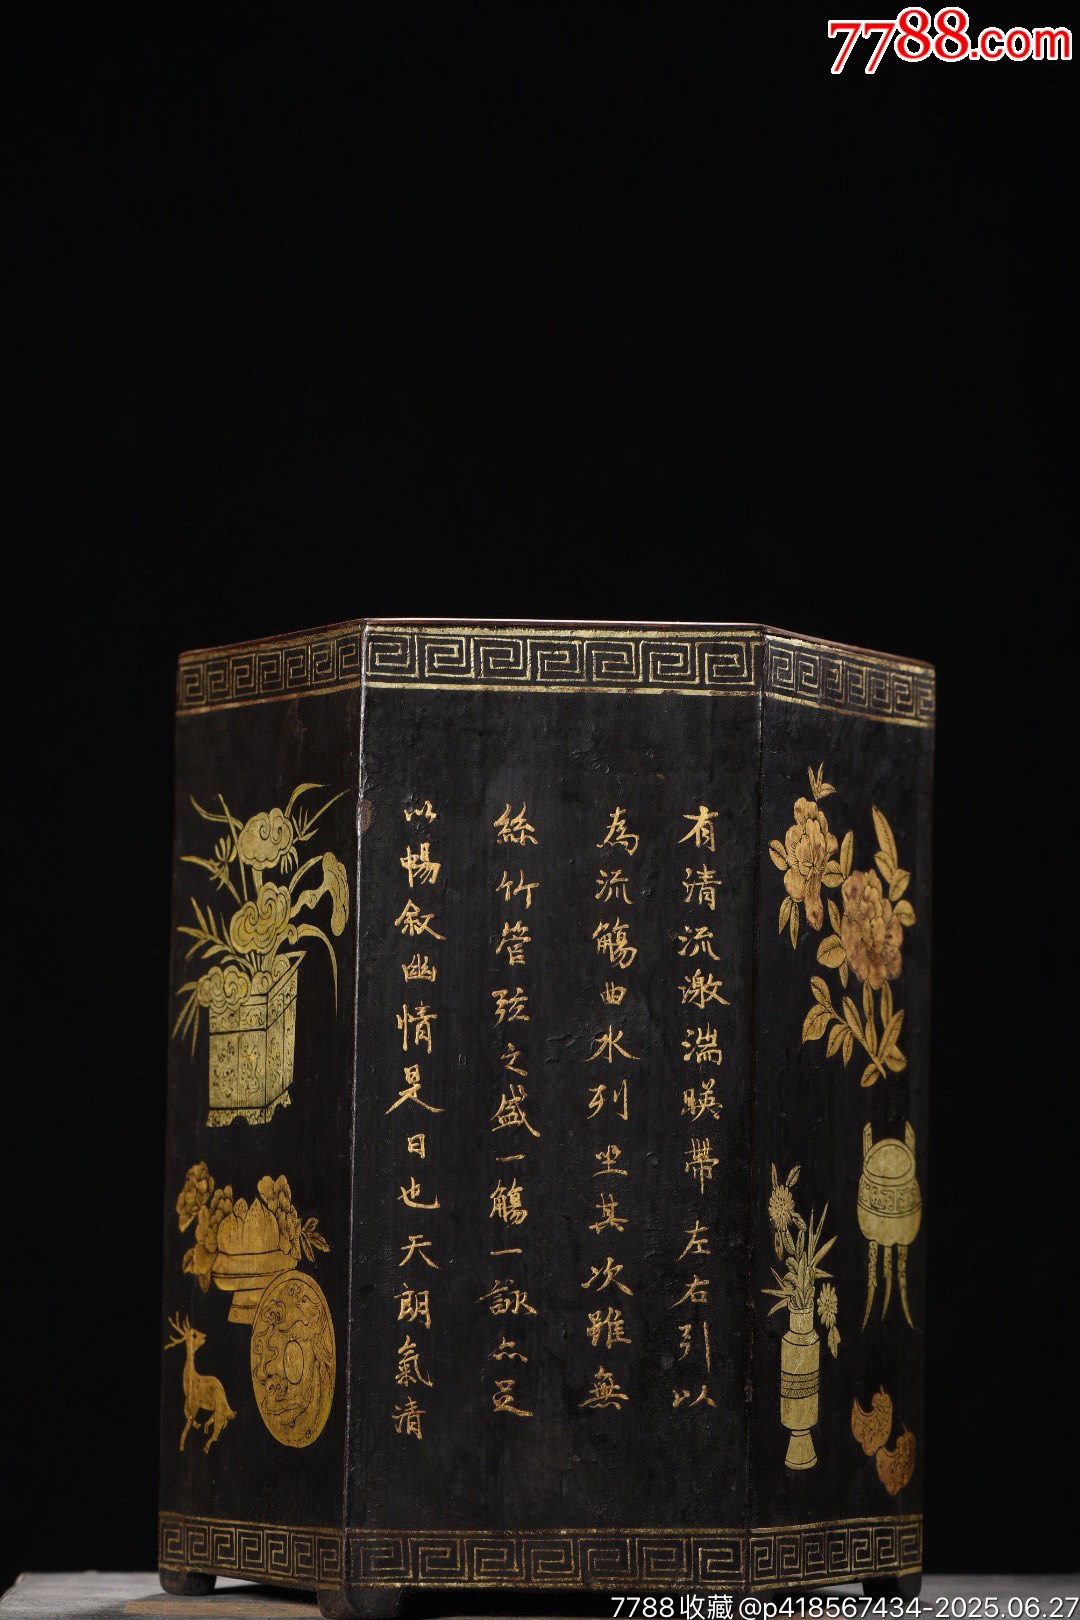 7788.com
有清流激湍暎帶左右引以
為流觴曲水列坐其次雖無
絲竹管弦之盛一觴一詠亦足
以暢敘幽情是日也天朗氣清
7788收藏@p418567434-2025.06.27